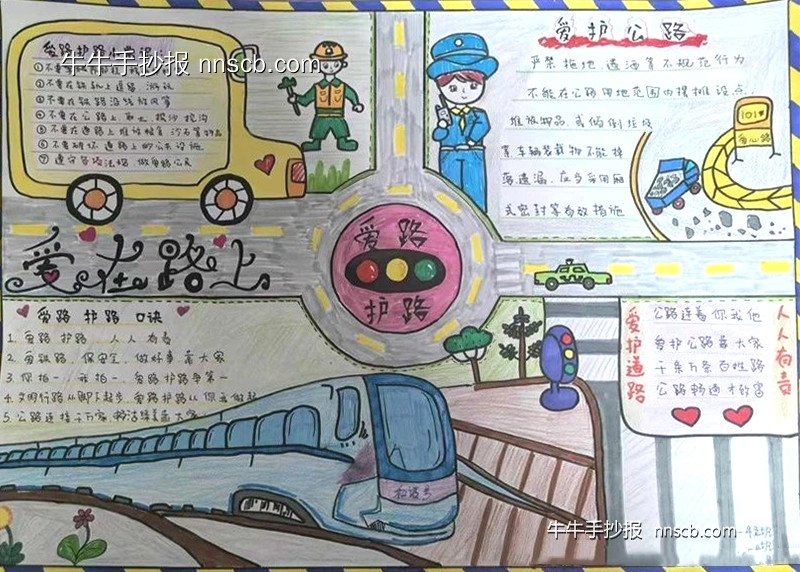 爱路护路小常识
牛牛手抄报 nnscb.com
②不要在铁轨上逗留、游玩
③不要在铁路沿线放风筝
④不要在公路上取土、挖沙、挖沟
⑤不要在道路上堆放粮食、沙石等物品
⑥不要破坏道路上的公共设施
⑦遵守各项法规,做爱路公民
爱护公路
严禁拖地、遗洒等不规范行为
不能在公路用地范围内摆摊设点、
堆放物品、或倾倒垃圾
车辆装载物不能掉
落遗漏,应当采用厢
式密封等有效措施
101
爱心路
爱在路上
爱路
护路
爱路护路口诀
1. 爱路护路 人人有责
2. 爱铁路,保安全,做好事靠大家
3. 你拍一 我拍一,爱路护路争第一
4. 文明行路从脚下起步 爱路护路从你我做起
5. 公路连接千万家
爱护道路
公路连着你我他
爱护公路靠大家
千条万条百姓路
公路畅通才能富
人人有责
牛牛手抄报 nnscb.com